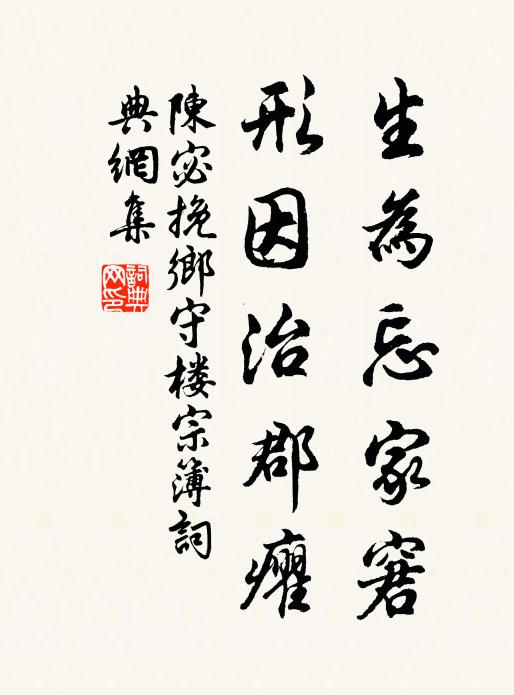 生為忘家窘
形因治郡癯
陳宓挽鄉守楼宗簿詞
典網集
詞典網印